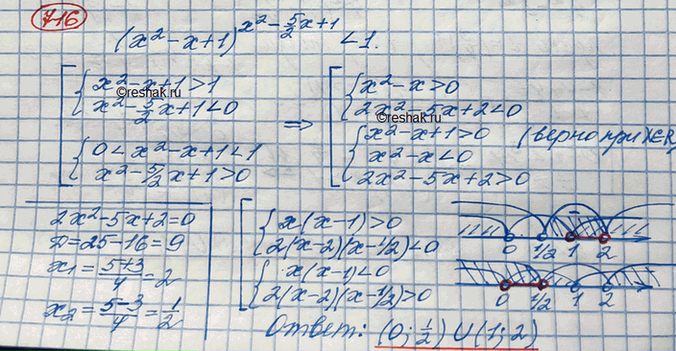 716
(x² - x + 1)^(x² - 5/2 x + 1) < 1.
[ { x² - x + 1 > 1
©reshak.ru
{ x² - 5/2 x + 1 < 0
{ 0 < x² - x + 1 < 1
{ x² - 5/2 x + 1 > 0
⇒
[ { x² - x > 0
{ 2x² - 5x + 2 < 0
©reshak.ru
{ x² - x + 1 > 0 (верно при x∈R)
x² - x < 0
2x² - 5x + 2 > 0
2x² - 5x + 2 = 0
D = 25 - 16 = 9
x₁ = (5+3)/4 = 2
x₂ = (5-3)/4 = 1/2
[ { x(x-1) > 0
{ 2(x-2)(x-1/2) < 0
{ x(x-1) < 0
{ 2(x-2)(x-1/2) > 0
-
0 1/2 1 2
0 1/2 1 2
Ответ: (0; 1/2) ∪ (1; 2)